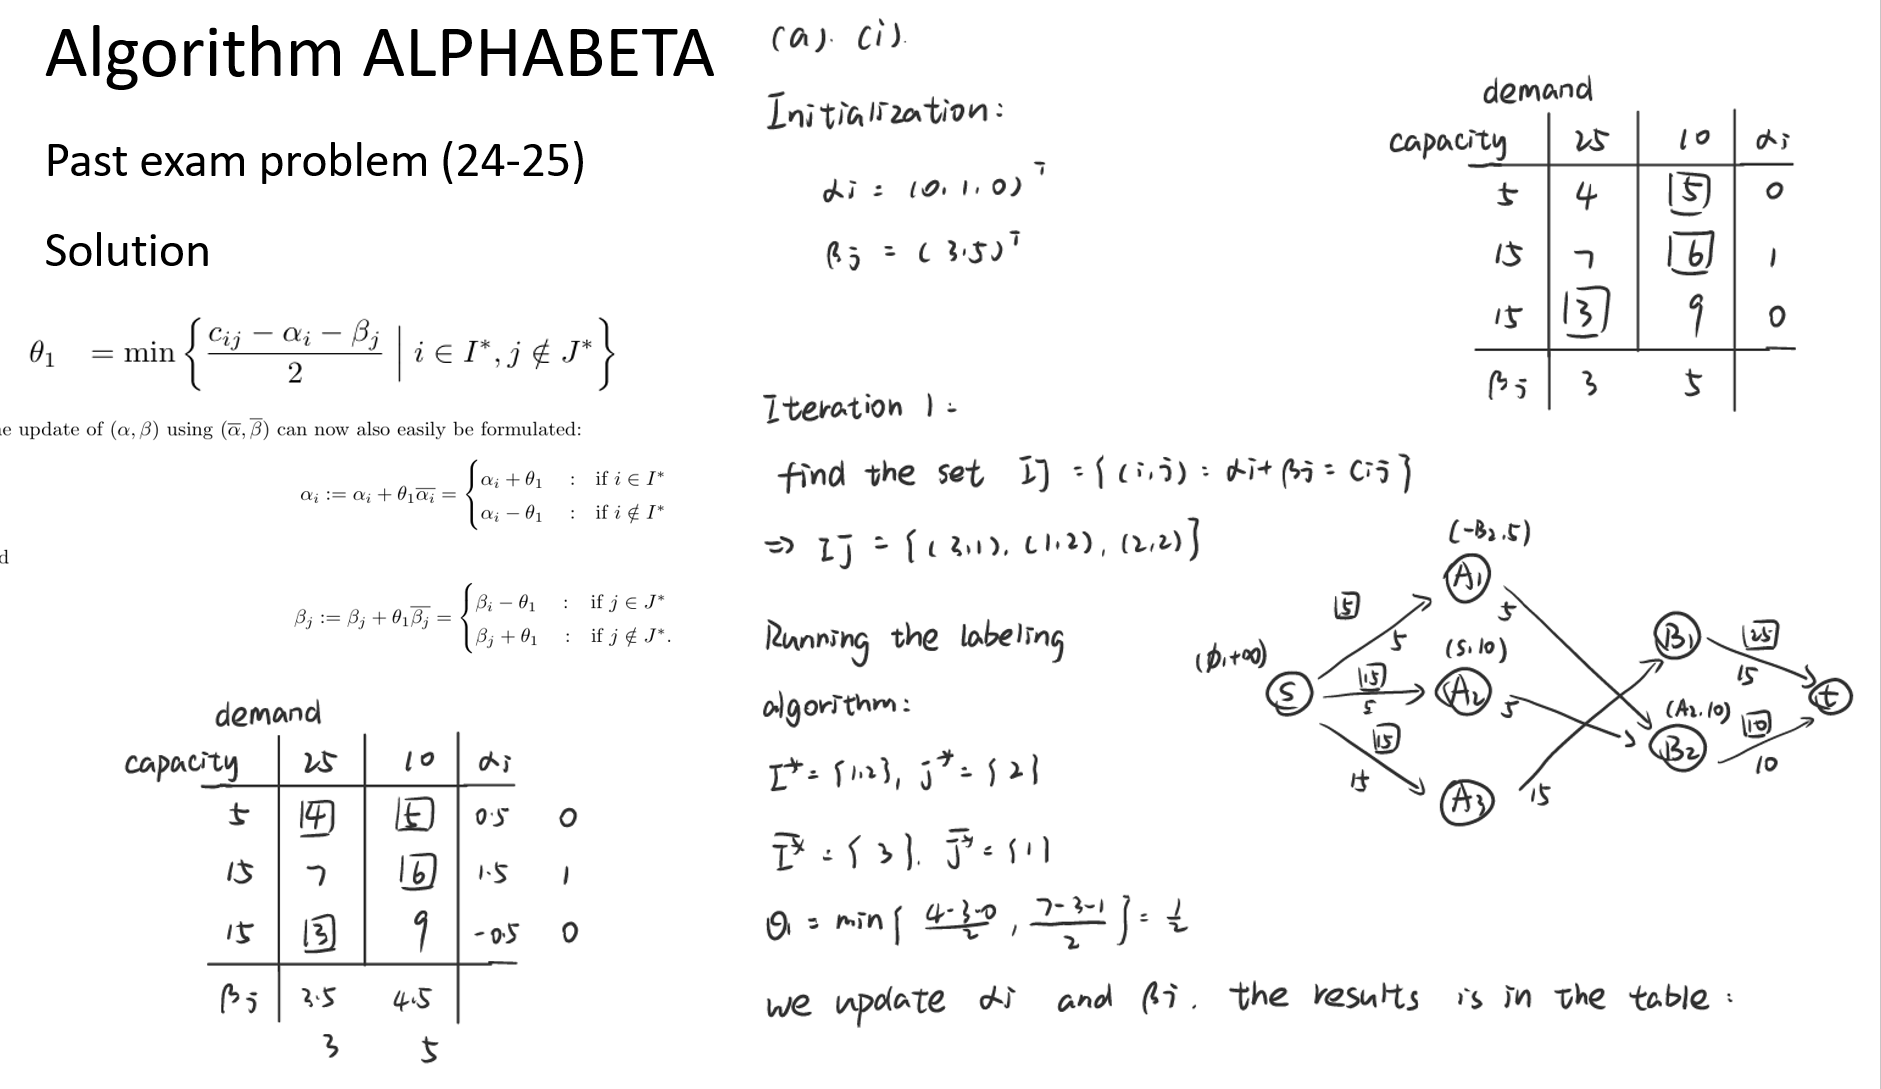 Algorithm ALPHABETA
Past exam problem (24-25)
Solution
θ₁ = min { (c_ij − α_i − β_j) / 2 | i ∈ I*, j ∉ J* }
e update of (α, β) using (α̅, β̅) can now also easily be formulated:
α_i := α_i + θ₁α̅_i = { α_i + θ₁ : if i ∈ I*
α_i − θ₁ : if i ∉ I*
d
β_j := β_j + θ₁β̅_j = { β_i − θ₁ : if j ∈ J*
β_j + θ₁ : if j ∉ J*.
demand
capacity 25 10 αi
5 4 5 0.5 0
15 7 6 1.5 1
15 3 9 -0.5 0
βj 3.5 4.5
3 5
(a). (i).
Initialization:
αi = (0, 1, 0)ᵀ
βj = (3, 5)ᵀ
demand
capacity 25 10 αi
5 4 5 0
15 7 6 1
15 3 9 0
βj 3 5
Iteration 1:
find the set IJ = { (i,j) : αi + βj = cij }
⇒ IJ = { (3,1), (1,2), (2,2) }
Running the labeling
algorithm:
I* = {1,2}, j* = {2}
I̅* = {3}, J̅* = {1}
θ₁ = min { (4-3-0)/2 , (7-3-1)/2 } = 1/2
we update αi and βj. the results is in the table:
(-B₂, 5)
A₁
5
5
5
(∅, +∞)
S
(S, 10)
15
A₂
5
5
15
15
A₃
15
B₁
25
15
(A₂, 10)
10
B₂
10
t